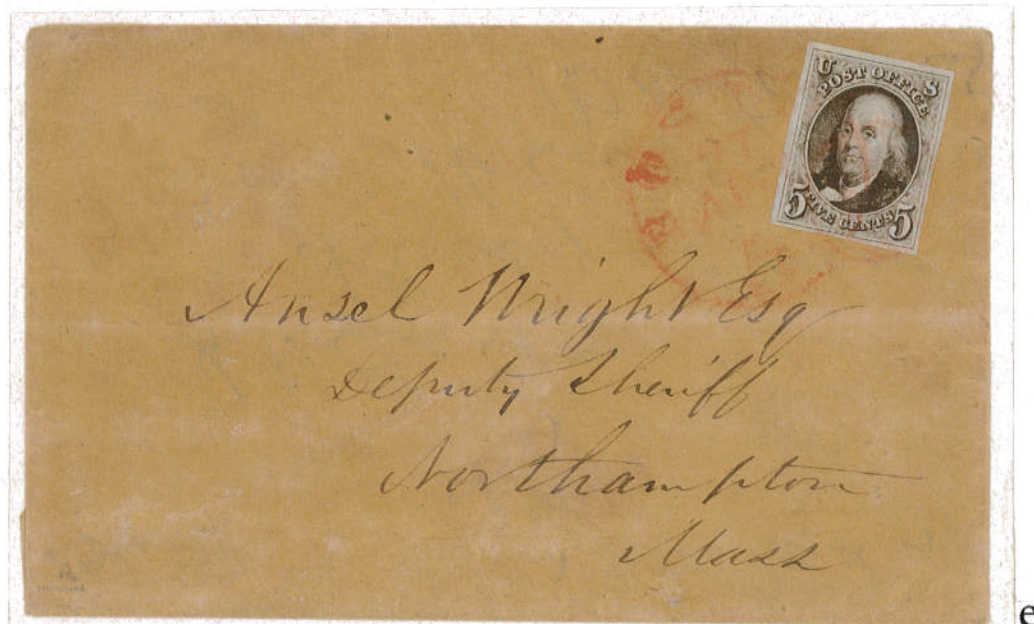 U S
POST OFFICE
5 FIVE CENTS 5
Ansel Wright Esq
Deputy Sheriff
Northampton
Mass
e